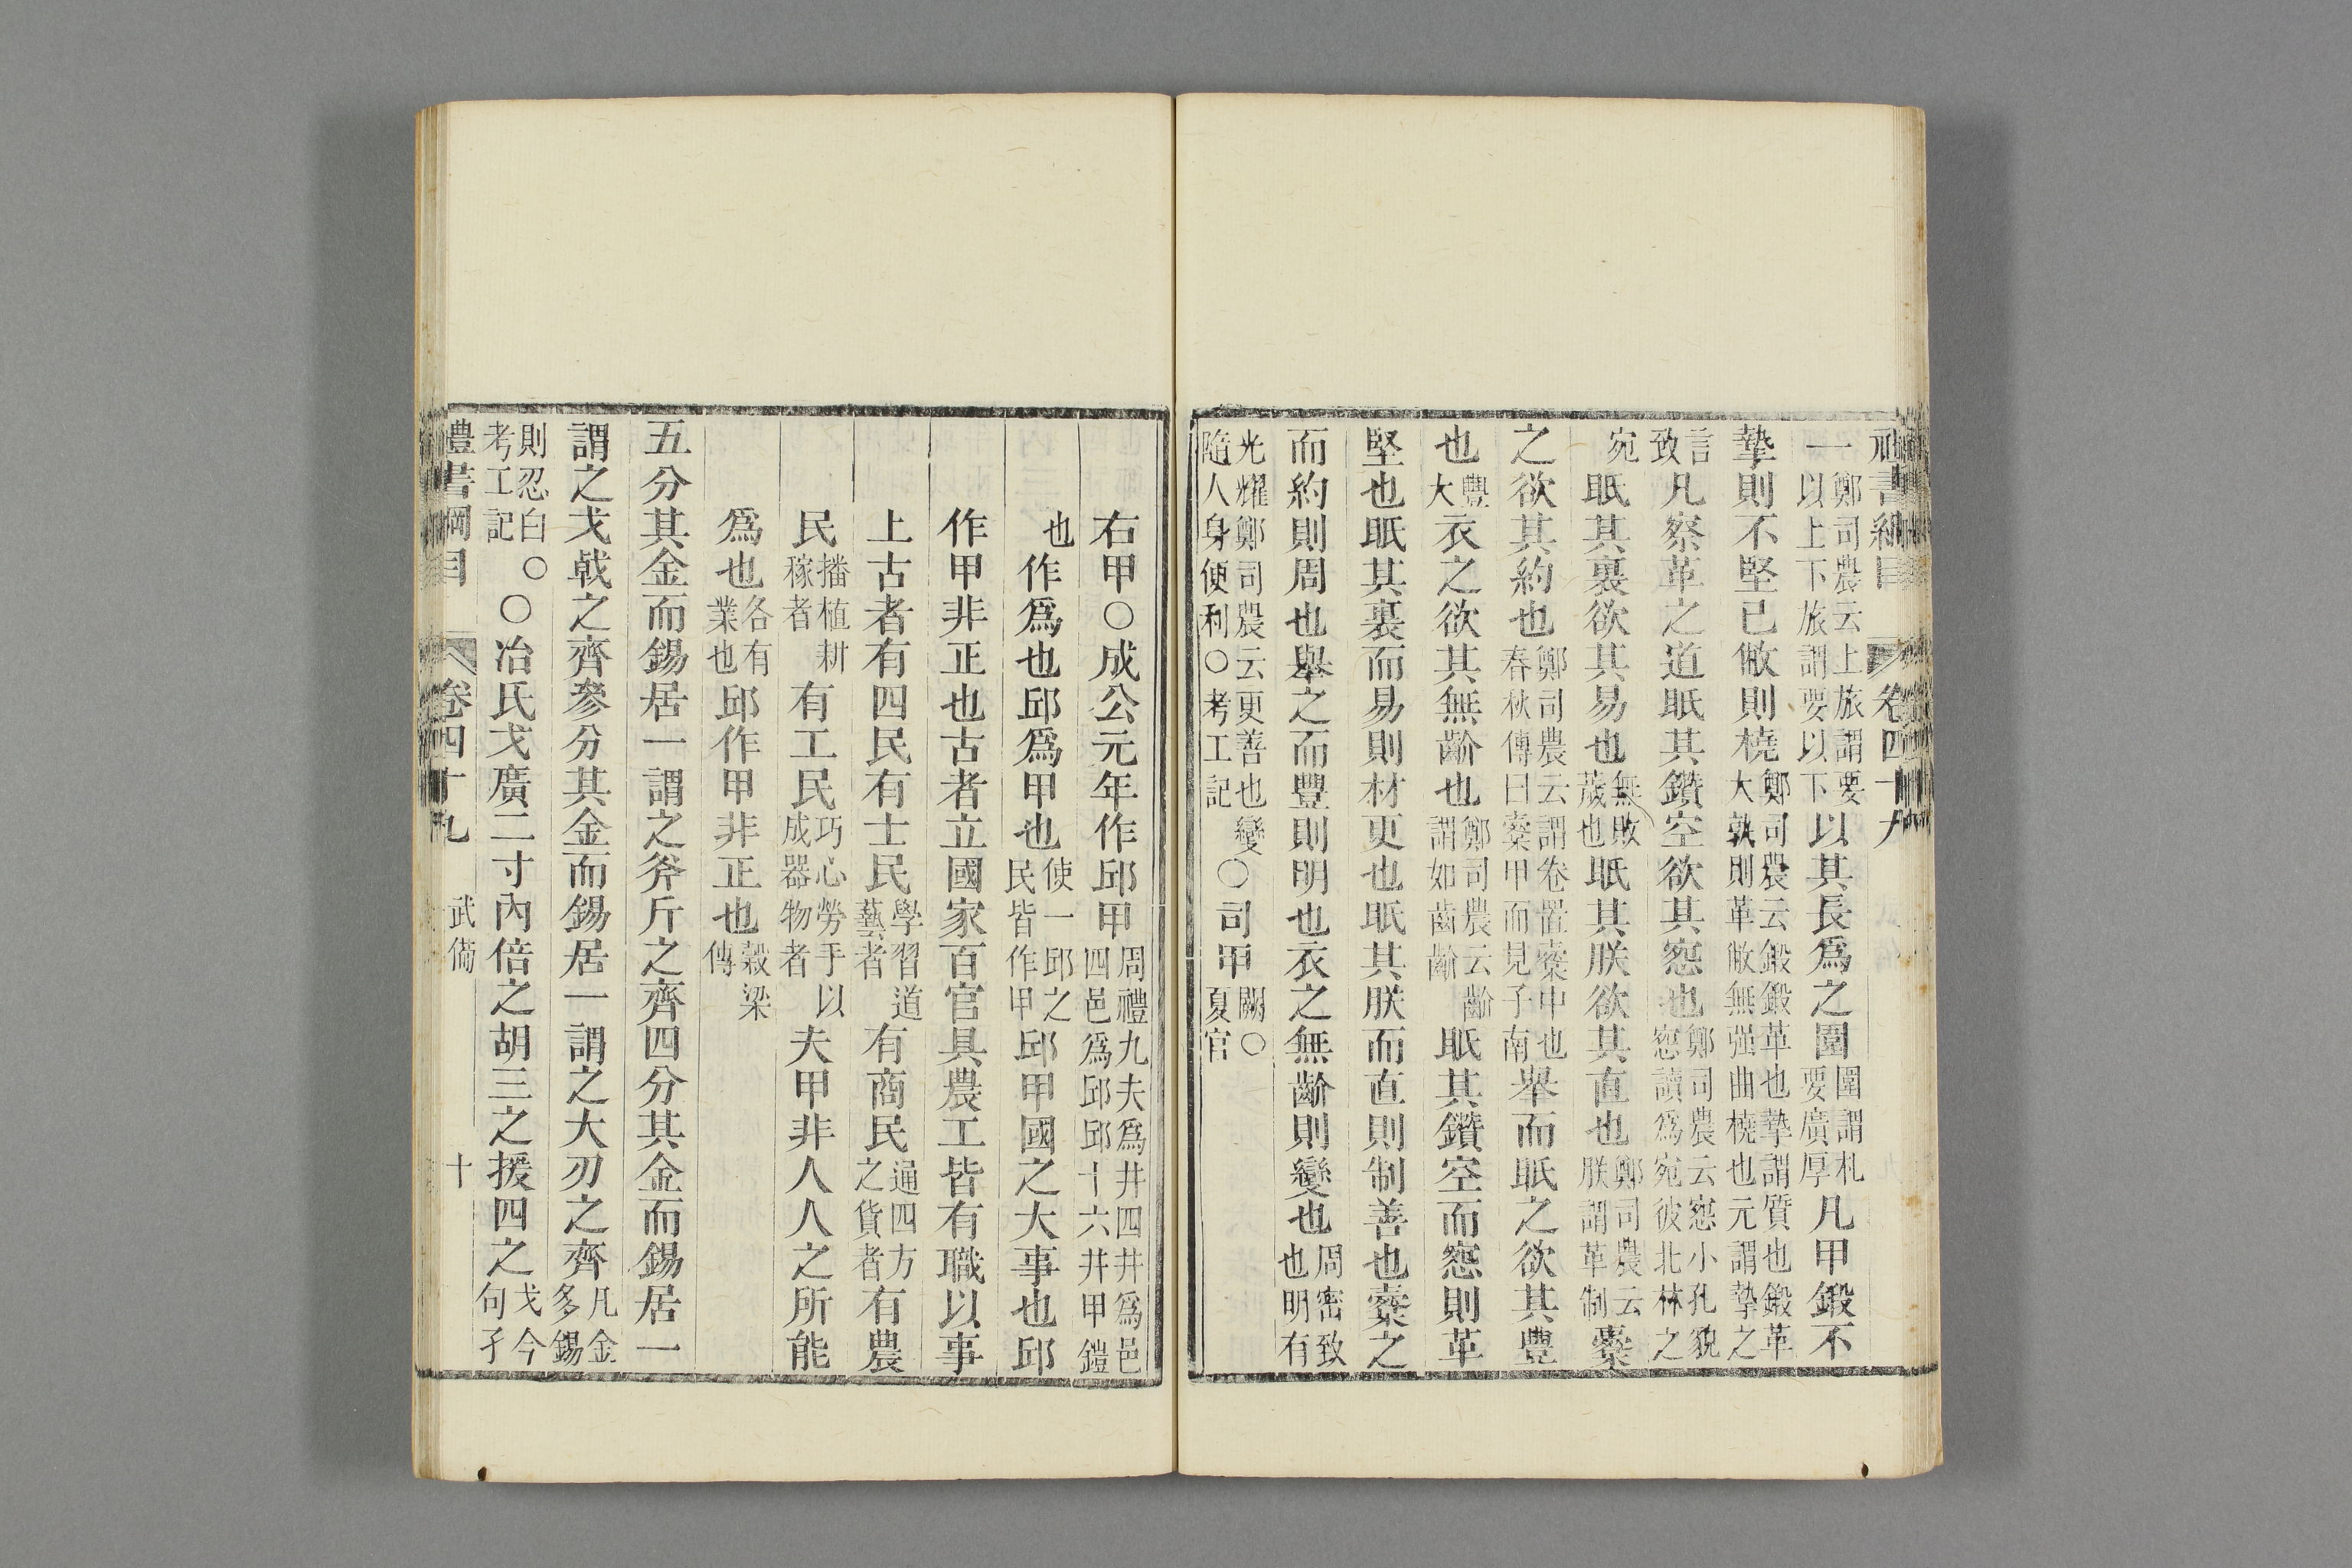 禮書綱目 卷四十九
一鄭司農云上旅謂要以上下旅謂要以下以其長爲之圍圍謂札要廣厚凡甲鍛不
摯則不堅已敝則橈鄭司農云鍛鍛革也摯謂質也鍛革大孰則革敝無强曲橈也元謂摯之
言致凡察革之道眡其鑽空欲其窓也鄭司農云窓小孔貌窓讀爲宛彼北林之
宛眡其裏欲其易也無敗薉也眡其朕欲其直也鄭司農云朕謂革制櫜
之欲其約也鄭司農云謂卷置櫜中也春秋傳曰櫜甲而見子南舉而眡之欲其豐
也豐大衣之欲其無齘也鄭司農云齘謂如齒齘眡其鑽空而窓則革
堅也眡其裏而易則材更也眡其朕而直則制善也櫜之
而約則周也舉之而豐則明也衣之無齘則變也周密致也明有
光燿鄭司農云更善也變隨人身便利○考工記○司甲闕○夏官
右甲○成公元年作邱甲周禮九夫爲井四井爲邑四邑爲邱邱十六井甲鎧
也作爲也邱爲甲也使一邱之民皆作甲邱甲國之大事也邱
作甲非正也古者立國家百官具農工皆有職以事
上古者有四民有士民學習道藝者有商民通四方之貨者有農
民播植耕稼者有工民巧心勞手以成器物者夫甲非人人之所能
爲也各有業也邱作甲非正也穀梁傳
五分其金而錫居一謂之斧斤之齊四分其金而錫居一
謂之戈戟之齊參分其金而錫居一謂之大刃之齊凡金多錫
則忍白○考工記○冶氏戈廣二寸內倍之胡三之援四之戈今句孑
禮書綱目 卷四十九 武備 十